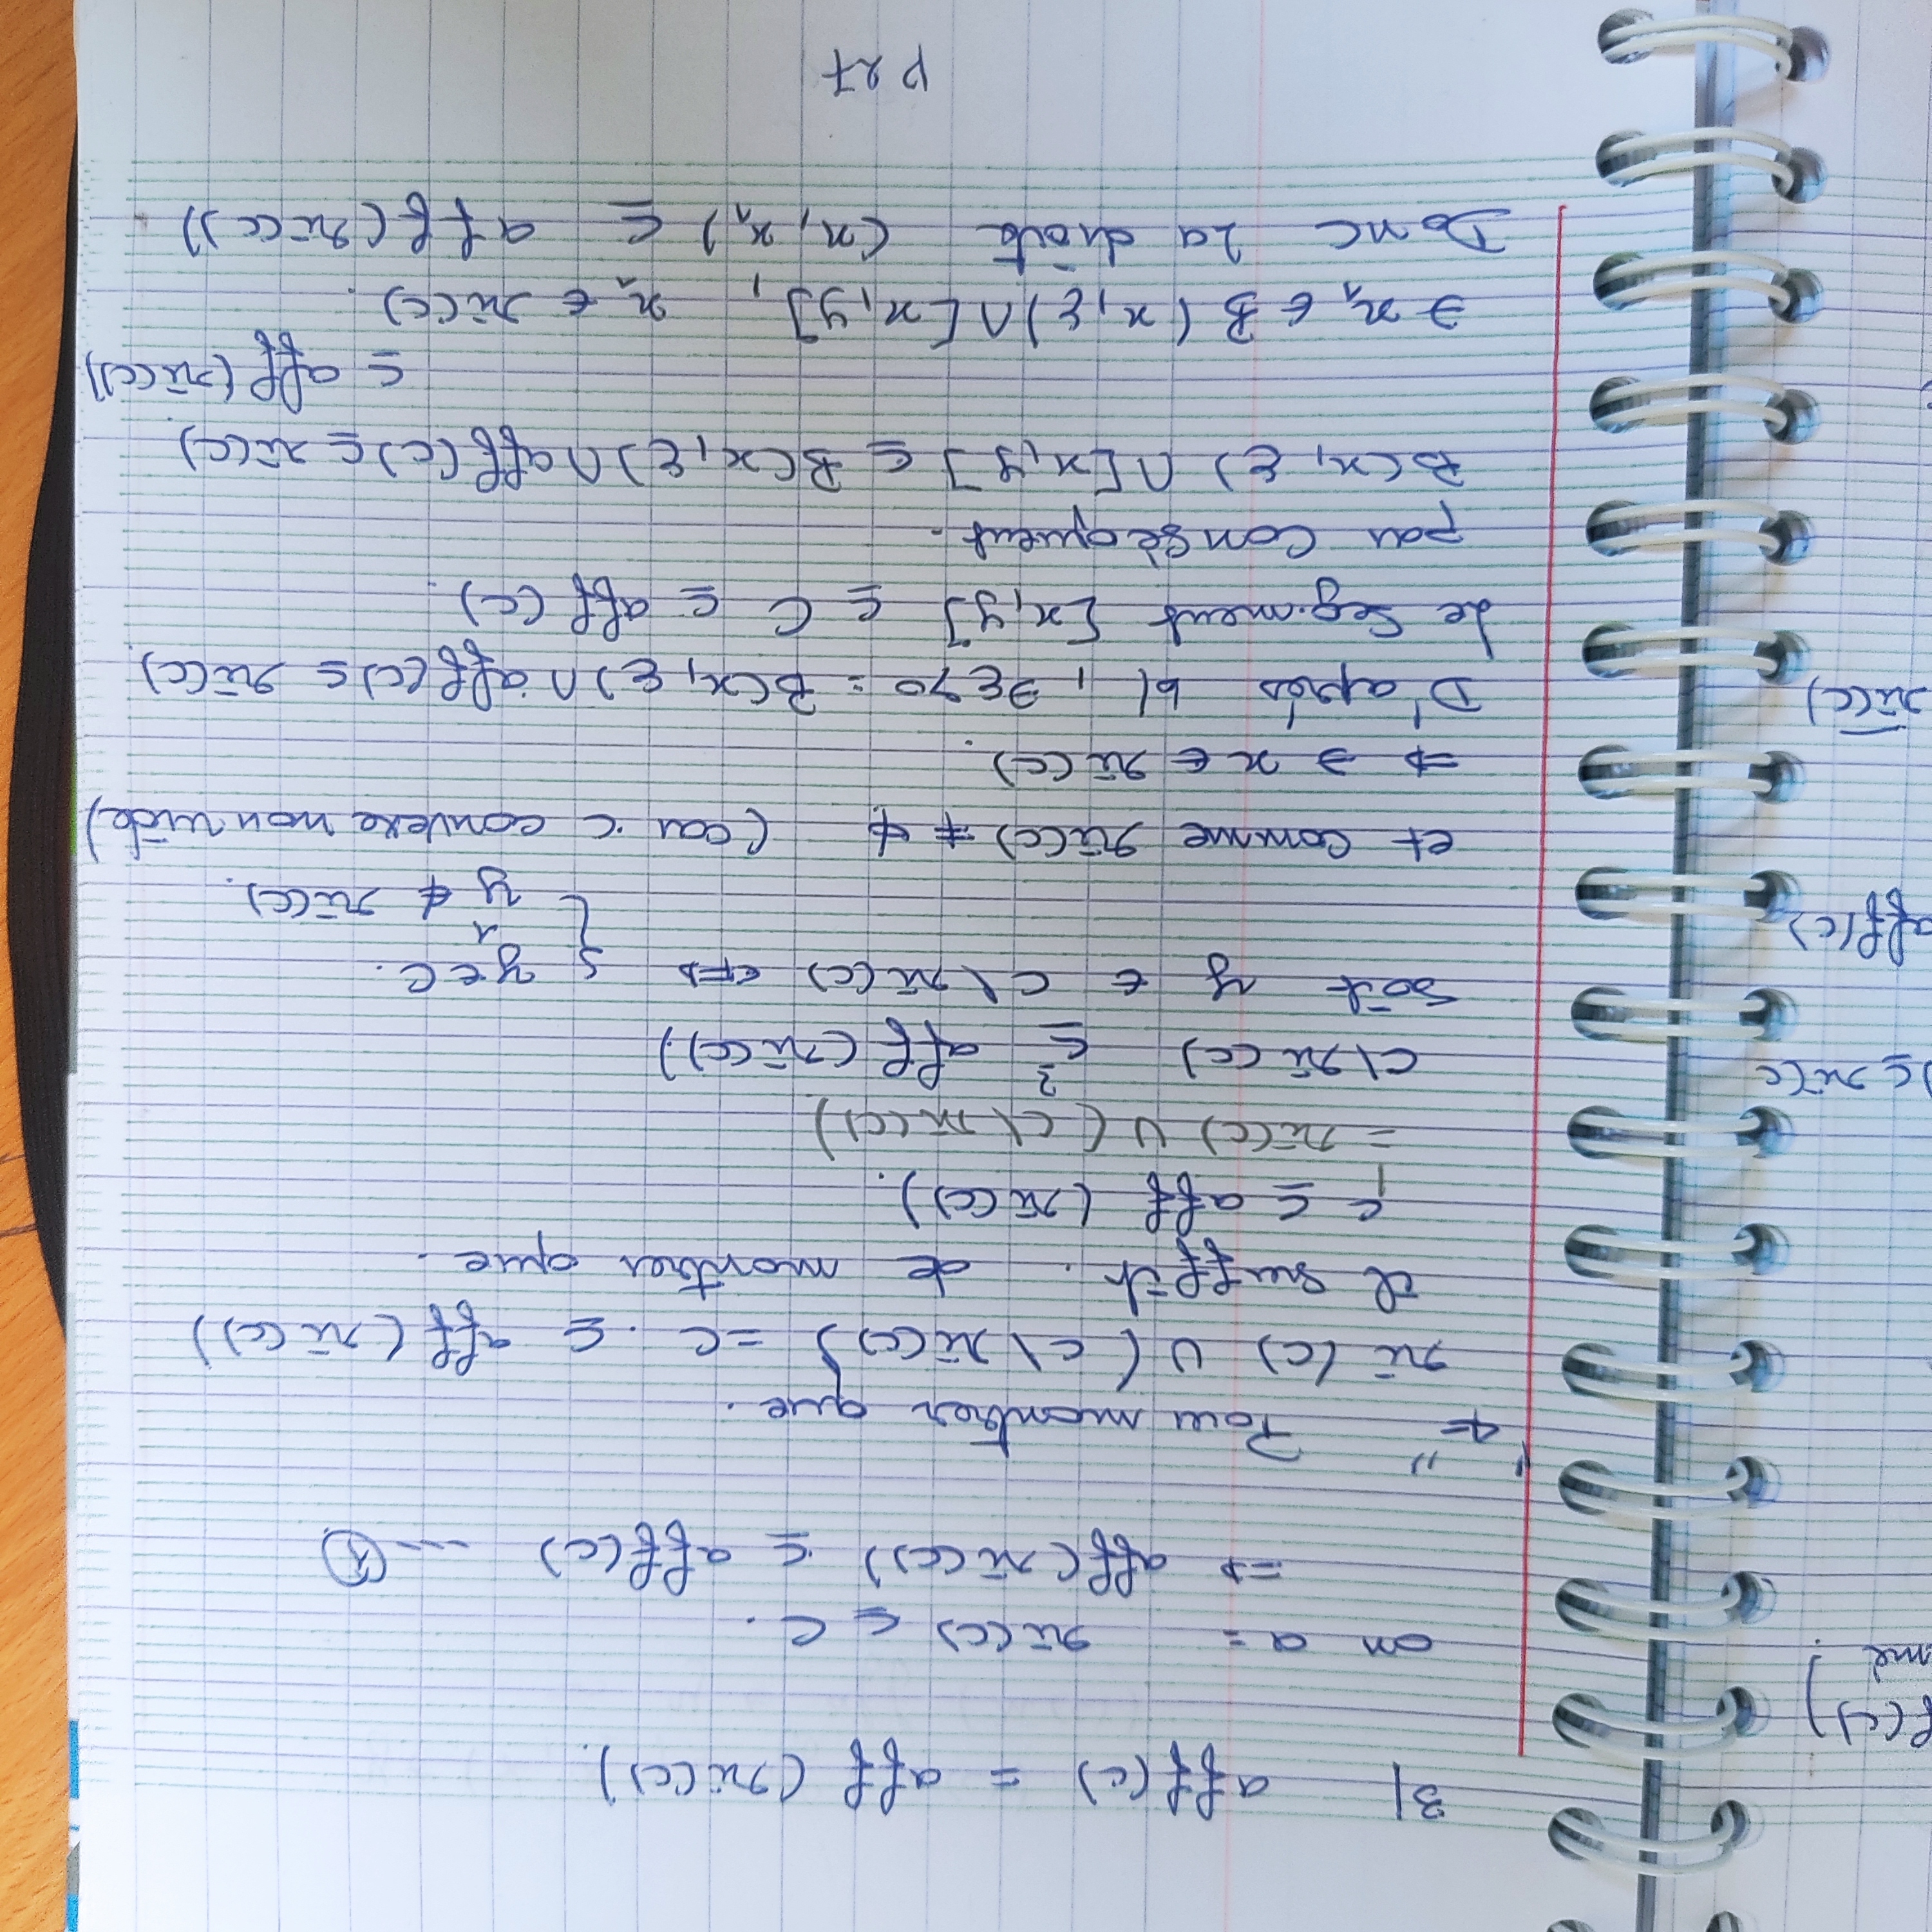 f(c)
mé
) ⊆ ri(c
aff(c)
ri(c)
3| aff(c) = aff (ri(c)).
on a = ri(c) ⊆ C.
=> aff(ri(c)) ⊆ aff(c) --- ①
"<=" Pour montrer que.
ri(c) ∪ (c\ri(c)) = C. ⊆ aff(ri(c))
il suffit. de montrer que.
C ⊆ aff (ri(c)).
= ri(c) ∪ (c\ri(c))
c\ri(c) ⊆? aff(ri(c))
Soit y ∈ C\ri(c) <=> { y ∈ C.
∧
y ∉ ri(c).
et Comme ri(c) ≠ ∅ (car C convexe non vide)
=> ∃ x ∈ ri(c).
D'aprés b|, ∃ε>0 : B(x, ε) ∩ aff(c) ⊆ ri(c).
Le Segment [x,y] ⊆ C ⊆ aff(c).
par Conséquent.
B(x, ε) ∩ [x,y] ⊆ B(x,ε) ∩ aff(c) ⊆ ri(c)
⊆ aff(ri(c))
∃ x₁ ∈ B(x,ε) ∩ [x,y], x₁ ∈ ri(c).
Donc la droite (x, x₁) ⊆ aff(ri(c)).
P 27